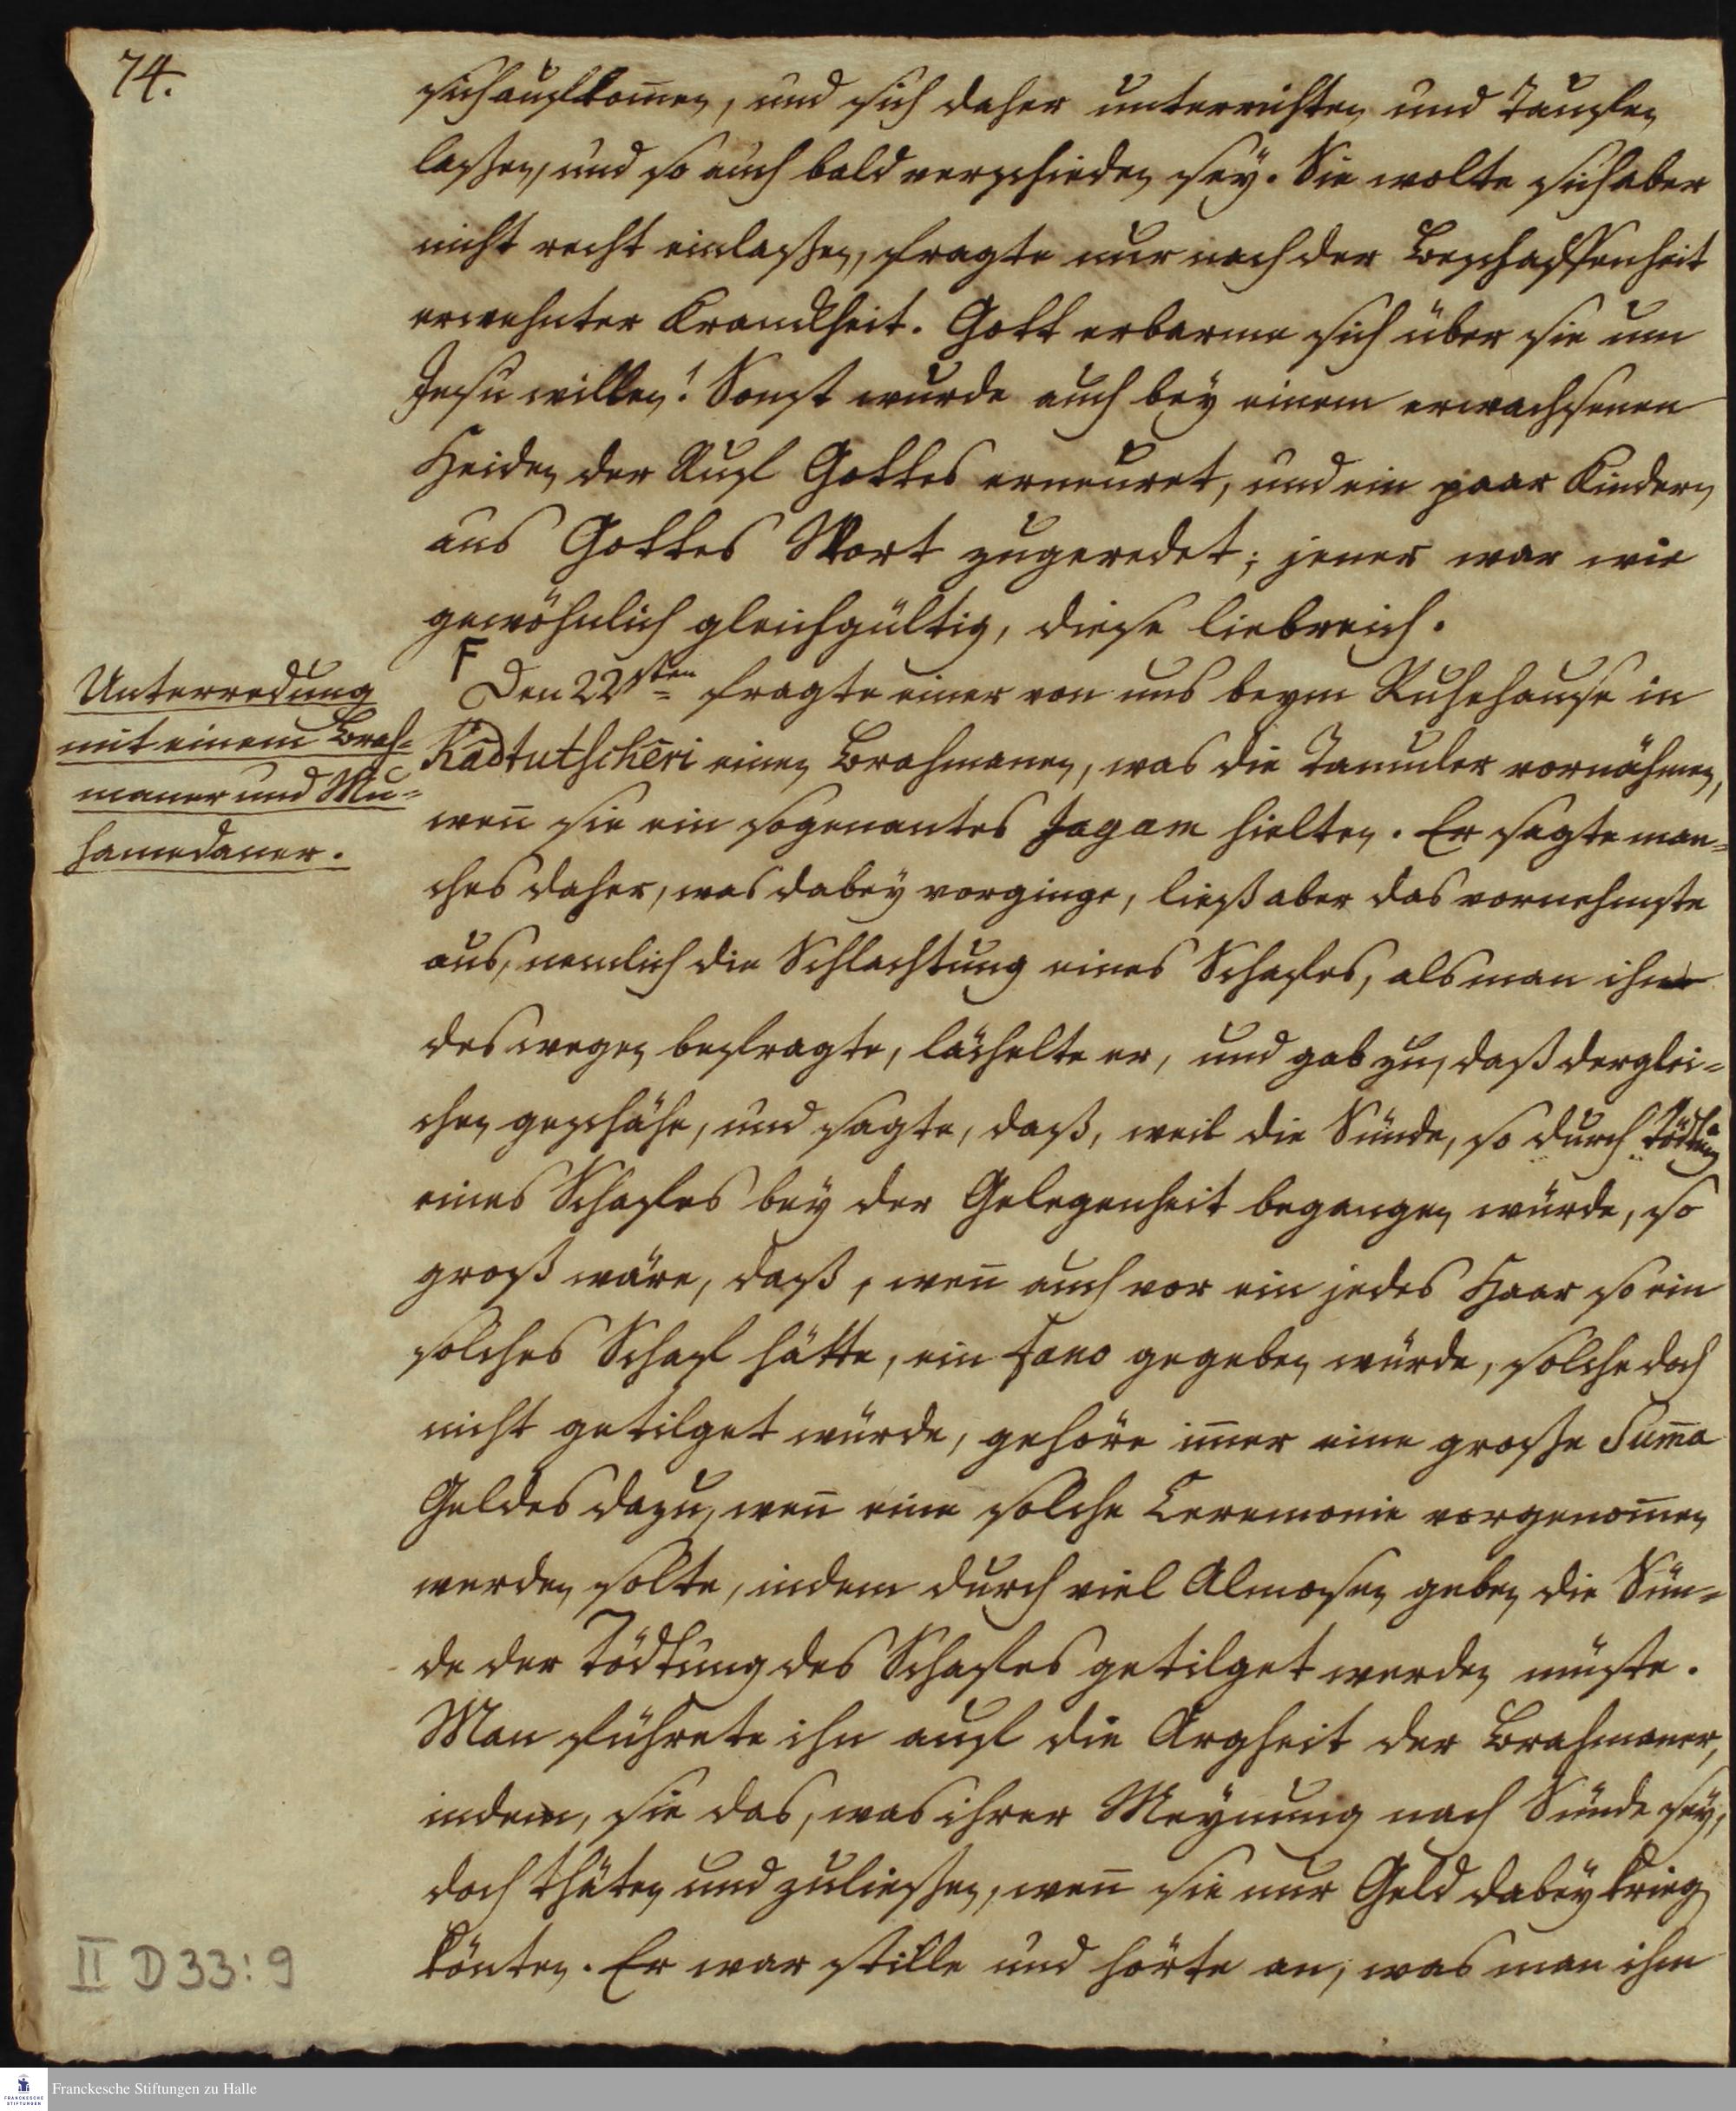 74.
sich aufkom̅en, und sich daher unterrichten und Taufen
laßen, und so auch bald verschieden sey. Sie wolte sich aber
nicht recht einlaßen, fragte nur nach der Beschaffenheit
erwehnter Kranckheit. Gott erbarme sich über sie um
Jesu willen! Sonst wurde auch bey einem erwachsenen
Heiden der Ruf Gottes erneuret, und ein paar Kindern
aus Gottes Wort zugeredet; jener war wie
gewöhnlich gleichgültig, diese liebreich.
Unterredung
mit einem Brah=
maner und Mu=
hamedaner.
F
Den 22sten fragte einer von uns beym Ruhehause in
Kādtutschēri einen Brahmanen, was die Tamuler vornähmen,
wen̅ sie ein sogenantes Jagam hielten. Er sagte man=
ches daher, was dabey vorginge, ließ aber das vornehmste
aus, nemlich die Schlachtung eines Schafes, als man ihn
deswegen befragte, lächelte er, und gab zu, daß derglei=
chen geschähe, und sagte, daß, weil die Sünde, so durch Tödtung
eines Schafes bey der Gelegenheit begangen würde, so
groß wäre, daß, wen̅ auch vor ein jedes Haar so ein
solches Schaf hätte, ein Fano gegeben würde, solche doch
nicht getilget würde, gehöre im̅er eine große Sum̅a
Geldes dazu, wen̅ eine solche Ceremonie vorgenom̅en
werden solte, indem durch viel Almosen geben die Sün=
de der Tödtung des Schafes getilget werden müste.
Man führete ihn auf die Argheit der Brahmaner,
indem, sie das, was ihrer Meynung nach Sünde sey,
doch thäten und zuließen, wen̅ sie nur Geld dabey krieg
könten. Er war stille und hörte an, was man ihm
II D 33:9
FRANCKESCHE
STIFTUNGEN
Franckesche Stiftungen zu Halle